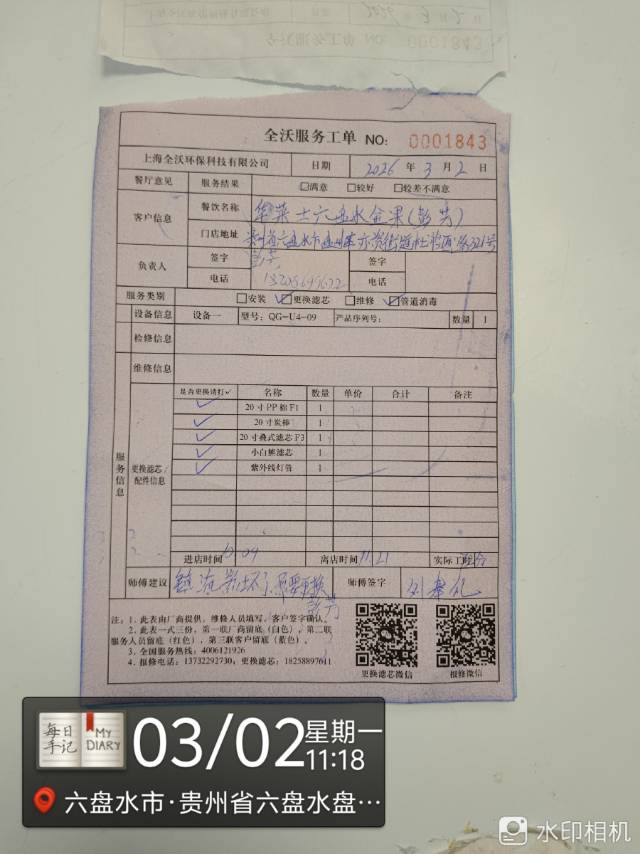 全沃服务工单 NO: 0001843
全沃服务工单 NO: 0001843
上海全沃环保科技有限公司 日期 2026 年 3 月 2 日
餐厅意见 服务结果 满意 较好 较差不满意
客户信息 餐饮名称 华莱士六盘水金果(彭芳)
门店地址 贵州省六盘水市 321号
负责人 签字 彭芳 签字
电话 电话
服务类别 安装 更换滤芯 维修 管道消毒
设备信息 设备一 型号: QG-U4-09 产品序列号: 数量 1
检修信息
维修信息
服务信息
更换滤芯/配件信息
是否更换请打✓ 名称 数量 单价 合计 备注
✓ 20寸PP棉F1 1
✓ 20寸炭棒 1
✓ 20寸叠式滤芯F3 1
✓ 小白熊滤芯 1
✓ 紫外线灯管 1
进店时间 10:09 离店时间 11:21 实际工时
师傅建议 师傅签字
彭芳
注: 1、此表由厂商提供, 维检人员填写, 客户签字确认。
2、此表一式三份, 第一联厂商留底(白色), 第二联
服务人员留底(红色), 第三联客户留底(蓝色)。
3、全国服务热线: 4006121926
4、报修电话: 13732292730; 更换滤芯: 18258897611
更换滤芯微信 报修微信
每日手记 MY DIARY
03/02 星期一
11:18
六盘水市·贵州省六盘水盘…
水印相机